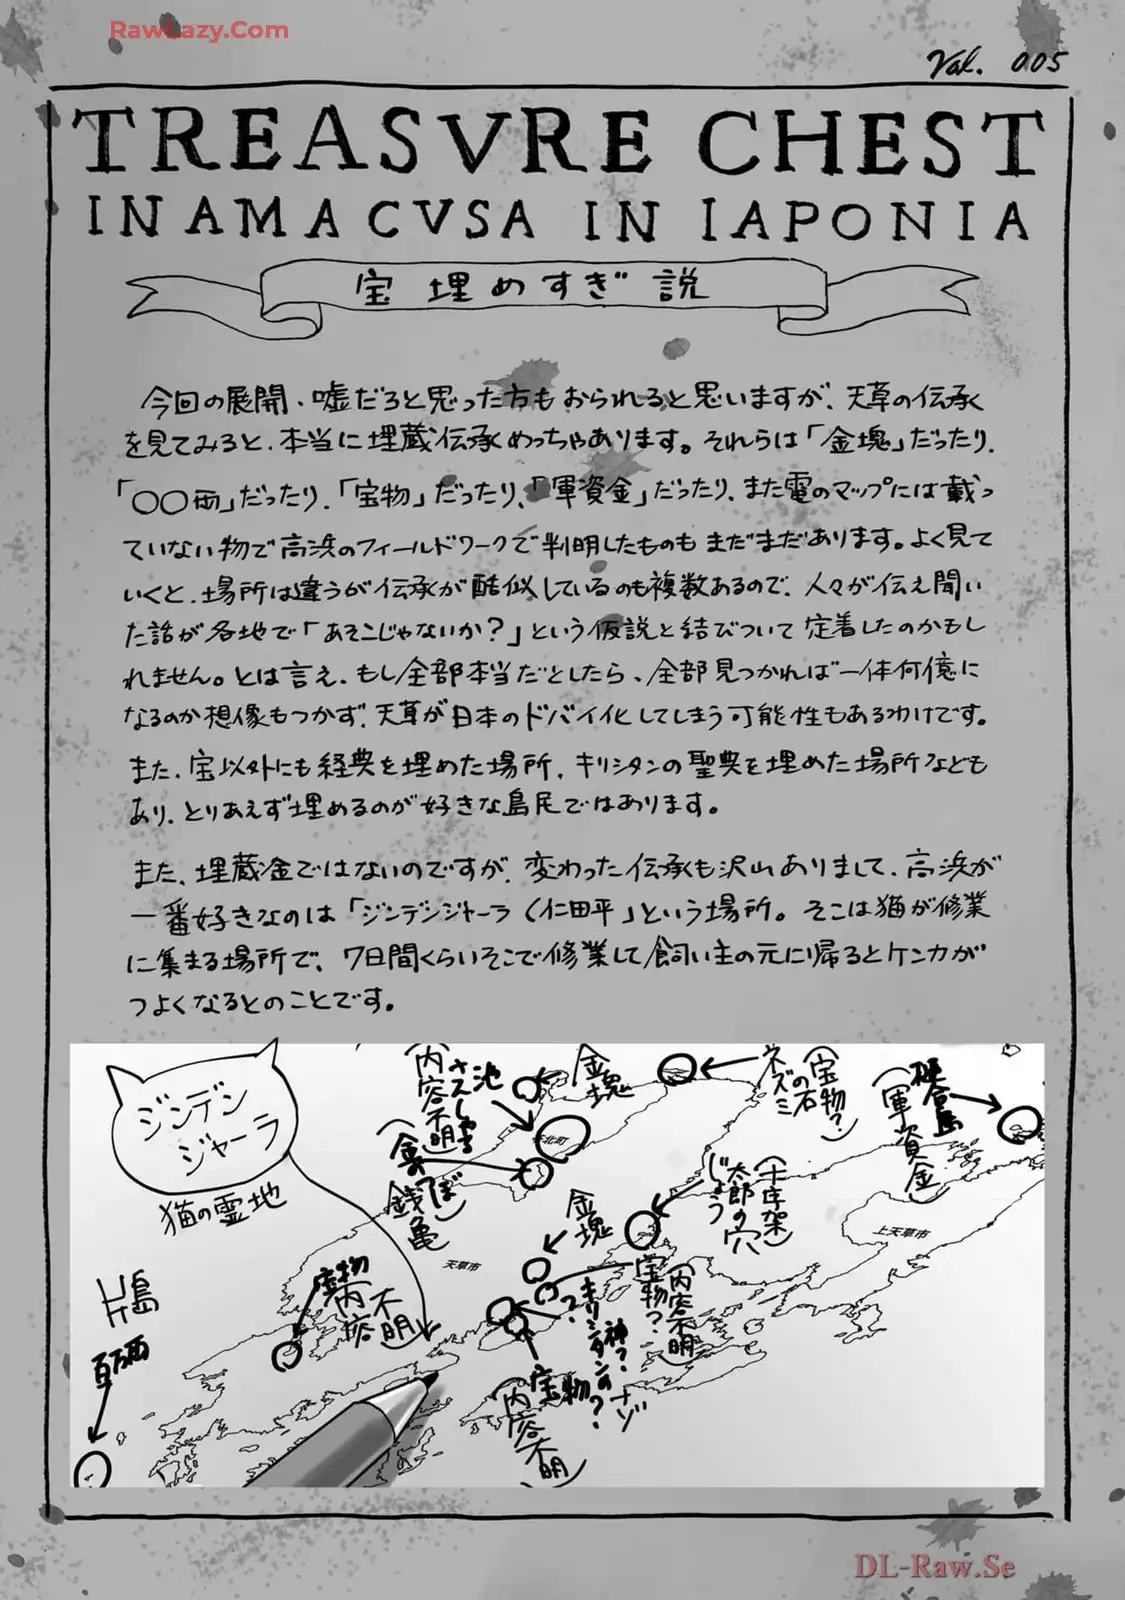 RawLazy.Com
Val. 005
TREASVRE CHEST
IN AMACVSA IN IAPONIA
宝埋めすぎ説
今回の展開、嘘だろと思った方もおられると思いますが、天草の伝承
を見てみると、本当に埋蔵伝承めっちゃあります。それらは「金塊」だったり、
「〇〇両」だったり、「宝物」だったり、「軍資金」だったり、また電のマップには載っ
ていない物で高浜のフィールドワークで判明したものもまだまだあります。よく見て
いくと、場所は違うが伝承が酷似しているのも複数あるので、人々が伝え聞い
た話が各地で「あそこじゃないか？」という仮説と結びついて定着したのかもし
れません。とは言え、もし全部本当だとしたら、全部見つかれば一体何億に
なるのか想像もつかず、天草が日本のドバイ化してしまう可能性もあるわけです。
また、宝以外にも経典を埋めた場所、キリシタンの聖典を埋めた場所なども
あり、とりあえず埋めるのが好きな島民ではあります。
また、埋蔵金ではないのですが、変わった伝承も沢山ありまして、高浜が
一番好きなのは「ジンデンジャーラ（仁田平」という場所。そこは猫が修業
に集まる場所で、7日間くらいそこで修業して飼い主の元に帰るとケンカが
つよくなるとのことです。
ジンデン
ジャーラ
猫の霊地
池
（内容不明）
金塊
ネズミの石
（宝物？）
（軍資金）
銭亀
金塊
太郎の穴
じょう
（十字架）
天草市
上天草市
宝物
内容不明
宝物？
（内容不明）
キリシタンの？
神？
ナゾ
宝物
（内容不明）
島
百万両
DL-Raw.Se